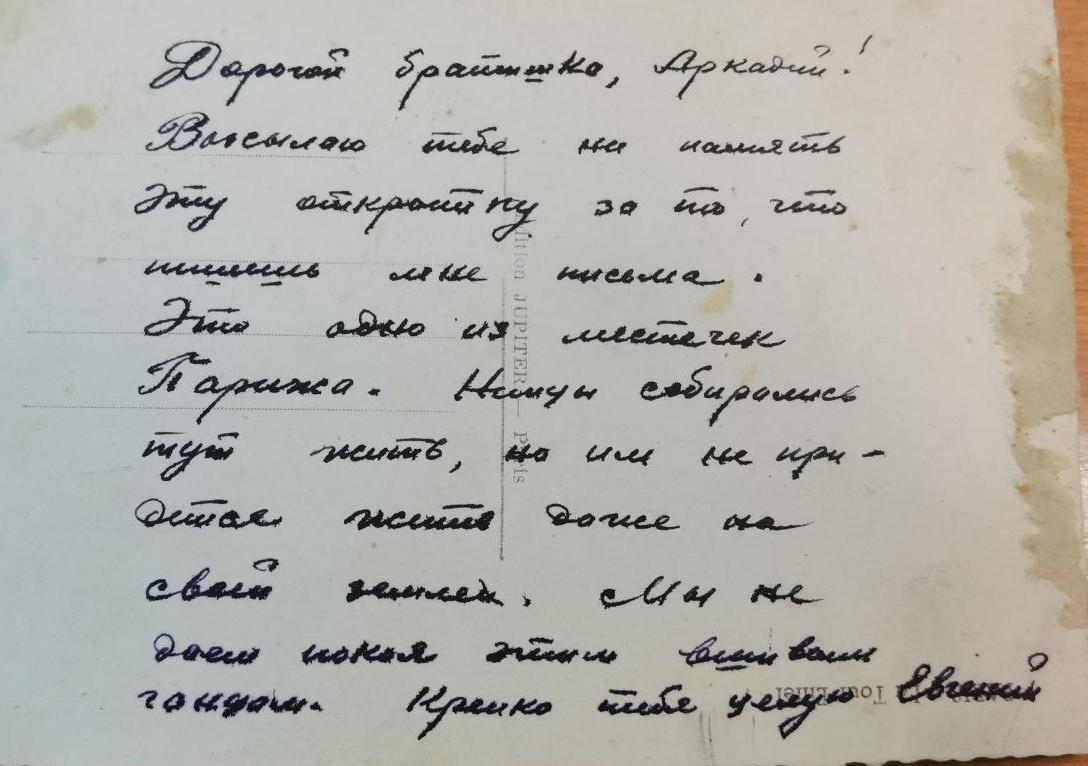 Дорогой братишка, Аркадий!
Высылаю тебе на память
эту открытку за то, что
пишешь мне письма.
Это одно из местечек
Парижа. Немцы собирались
тут жить, но им не при-
дется жить даже на
своей землей. Мы не
даем покоя этим вшивым
гандам. Крепко тебе целую Евгений
Edition JUPITER - Paris
Tour Eiffel